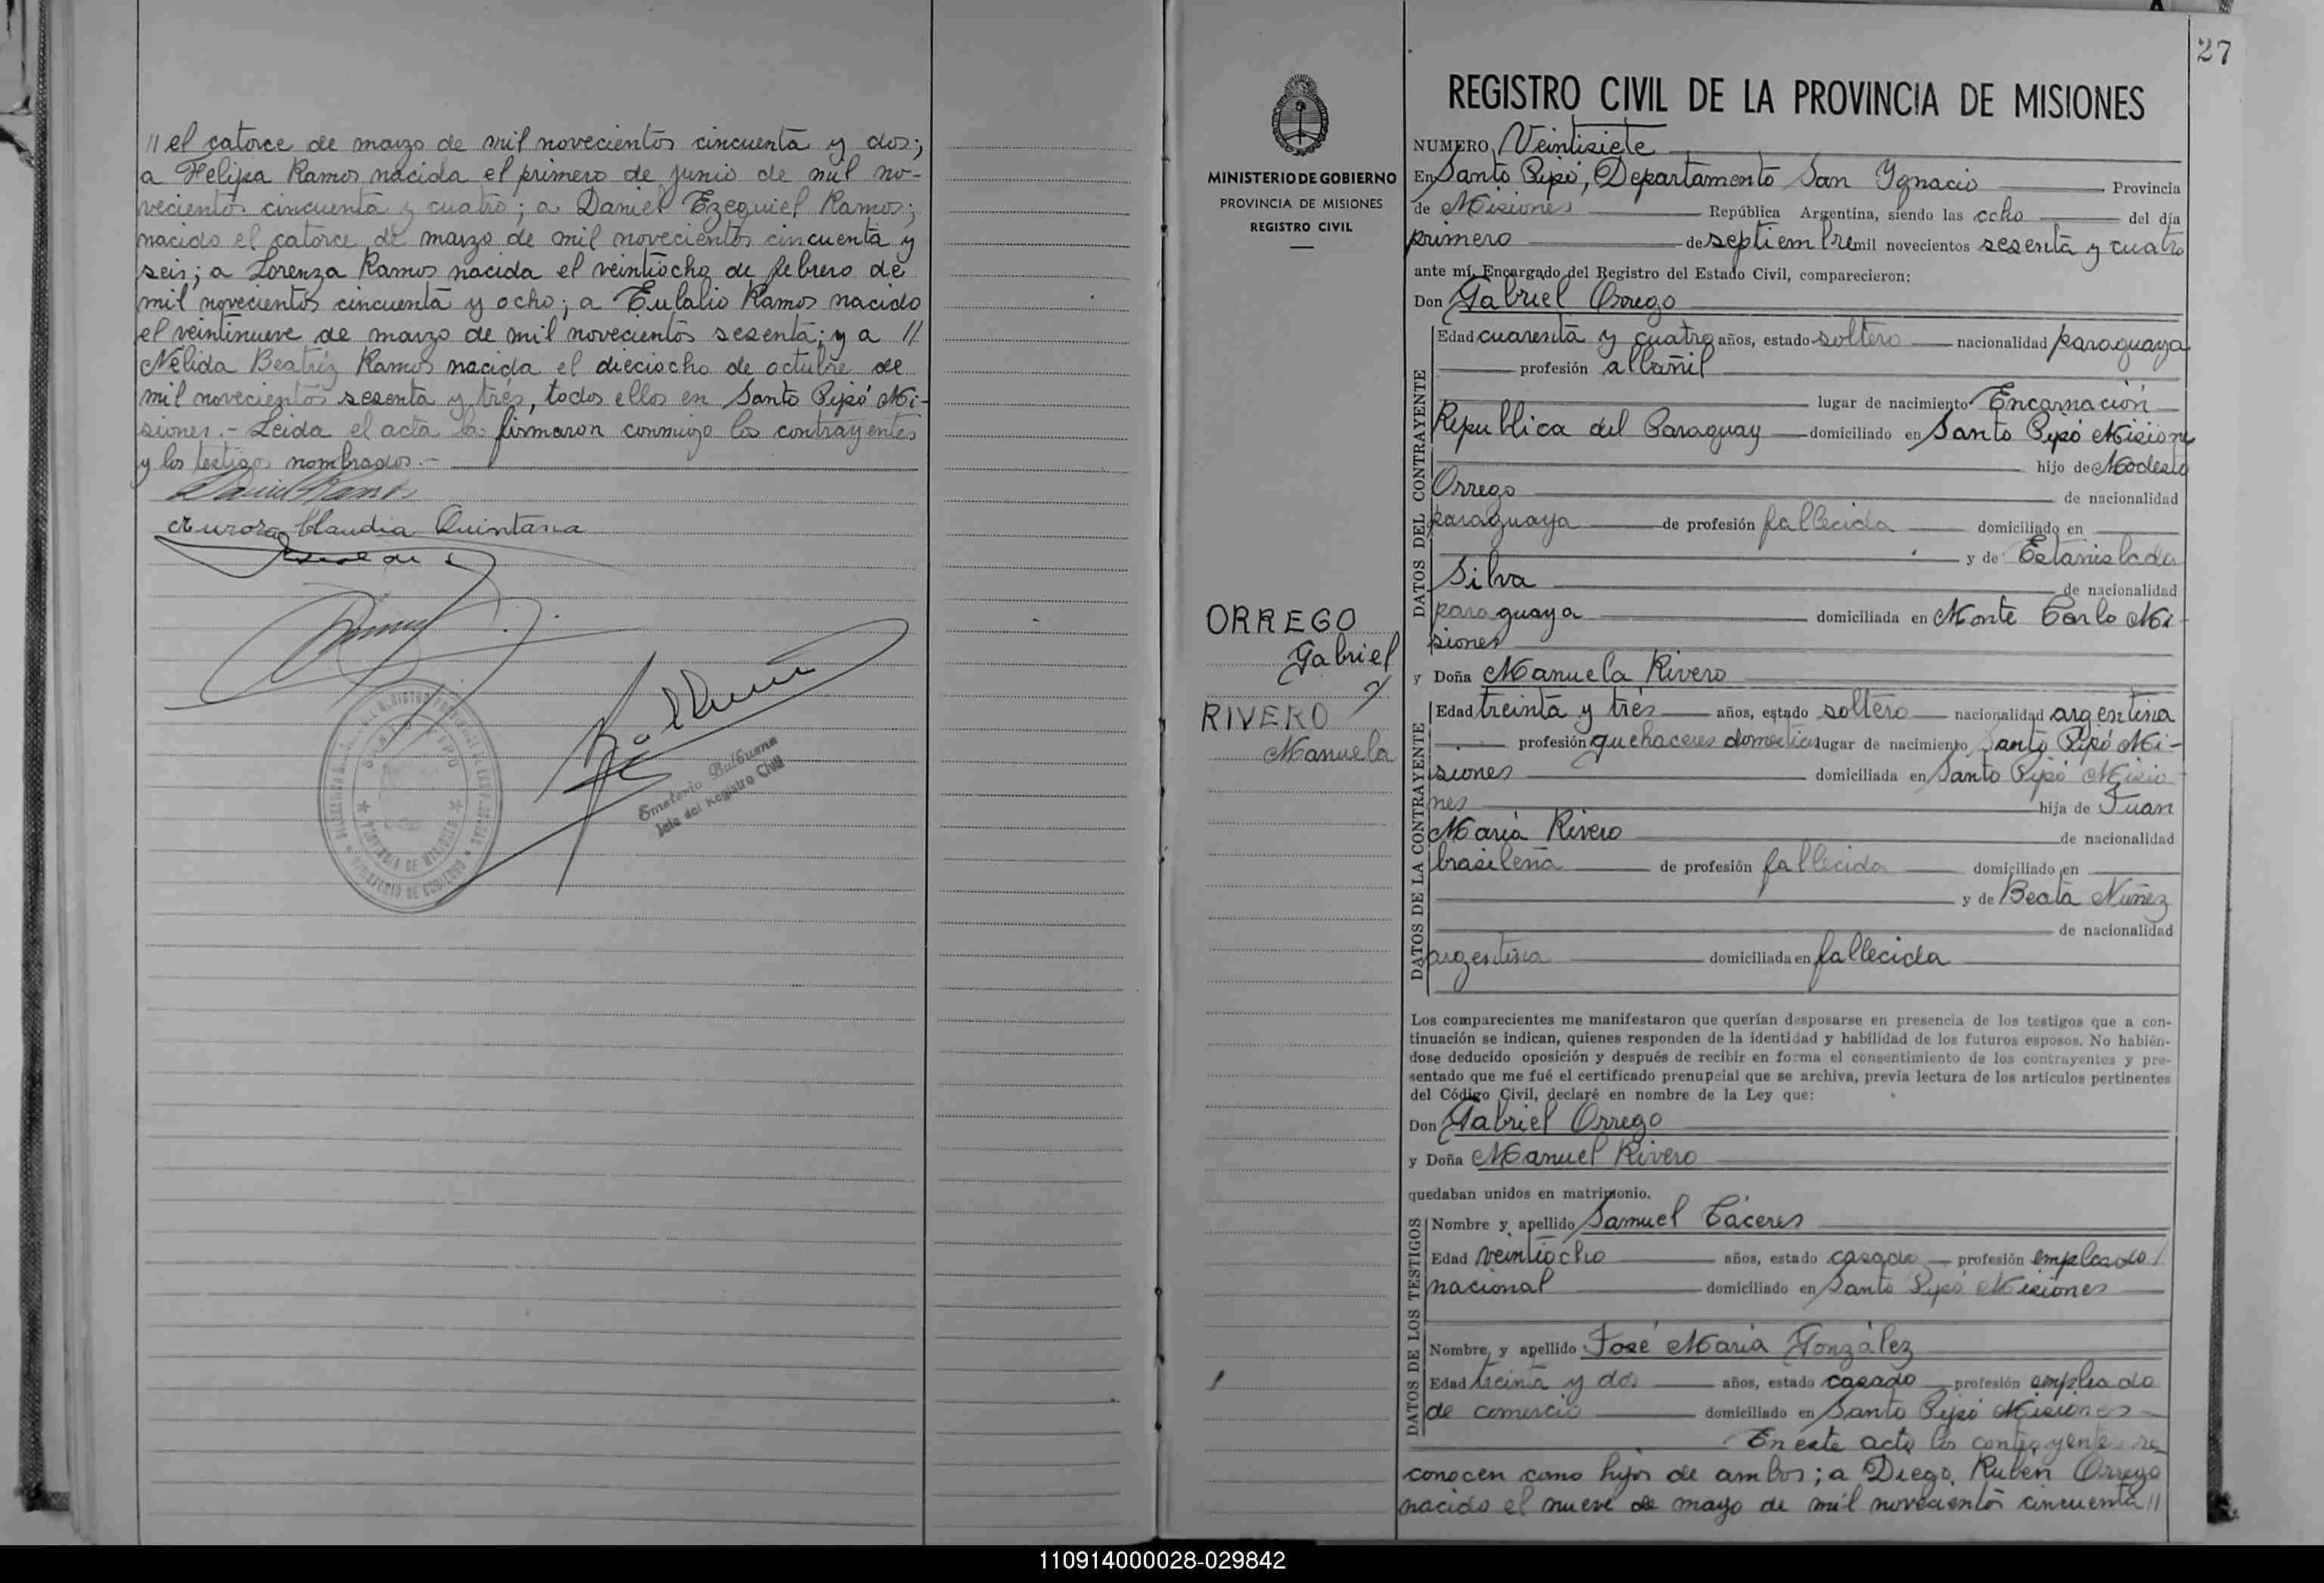 // el catorce de marzo de mil novecientos cincuenta y dos;
a Felipa Ramos nacida el primero de junio de mil no-
vecientos cincuenta y cuatro; a Daniel Ezequiel Ramos;
nacido el catorce de marzo de mil novecientos cincuenta y
seis; a Lorenza Ramos nacida el veintiocho de febrero de
mil novecientos cincuenta y ocho; a Eulalio Ramos nacido
el veintinueve de marzo de mil novecientos sesenta; y a //
Nélida Beatríz Ramos nacida el dieciocho de octubre de
mil novecientos sesenta y trés, todos ellos en Santo Pipó Mi-
siones.- Leida el acta la firmaron conmigo los contrayentes
y los testigos nombrados.-
Daniel Ramos
Aurora Claudia Quintana
SANTO PIPO
PROVINCIA DE MISIONES
MINISTERIO DE GOBIERNO
Emeterio Balbuena
Jefe del Registro Civil
27
MINISTERIO DE GOBIERNO
PROVINCIA DE MISIONES
REGISTRO CIVIL
ORREGO
Gabriel
y
RIVERO
Manuela
REGISTRO CIVIL DE LA PROVINCIA DE MISIONES
NUMERO Veintisiete
En Santo Pipó, Departamento San Ygnacio Provincia
de Misiones República Argentina, siendo las ocho del día
primero de septiembre mil novecientos sesenta y cuatro
ante mí, Encargado del Registro del Estado Civil, comparecieron:
Don Gabriel Orrego
DATOS DEL CONTRAYENTE
Edad cuarenta y cuatro años, estado soltero nacionalidad paraguaya
profesión albañil
lugar de nacimiento Encarnación
Republica del Paraguay domiciliado en Santo Pipó Misiones
hijo de Modesto
Orrego de nacionalidad
paraguaya de profesión fallecida domiciliado en
y de Estanislada
Silva de nacionalidad
paraguaya domiciliada en Monte Carlo Mi-
siones
y Doña Manuela Rivero
DATOS DE LA CONTRAYENTE
Edad treinta y trés años, estado soltero nacionalidad argentina
profesión quehaceres domesticos lugar de nacimiento Santo Pipó Mi-
siones domiciliada en Santo Pipó Misio-
nes hija de Juan
María Rivero de nacionalidad
brasileña de profesión fallecida domiciliado en
y de Beata Nuñez
de nacionalidad
argentina domiciliada en fallecida
Los comparecientes me manifestaron que querían desposarse en presencia de los testigos que a con-
tinuación se indican, quienes responden de la identidad y habilidad de los futuros esposos. No habién-
dose deducido oposición y después de recibir en forma el consentimiento de los contrayentes y pre-
sentado que me fué el certificado prenupcial que se archiva, previa lectura de los artículos pertinentes
del Código Civil, declaré en nombre de la Ley que:
Don Gabriel Orrego
y Doña Manuel Rivero
quedaban unidos en matrimonio.
DATOS DE LOS TESTIGOS
Nombre y apellido Samuel Cáceres
Edad veintiocho años, estado casado profesión empleado/
nacional domiciliado en Santo Pipó Misiones
Nombre y apellido José María González
Edad treinta y dos años, estado casado profesión empleado
de comercio domiciliado en Santo Pipó Misiones
En este acto los contrayentes re-
conocen como hijos de ambos; a Diego Ruben Orrego
nacido el nueve de mayo de mil novecientos cincuenta //
110914000028-029842